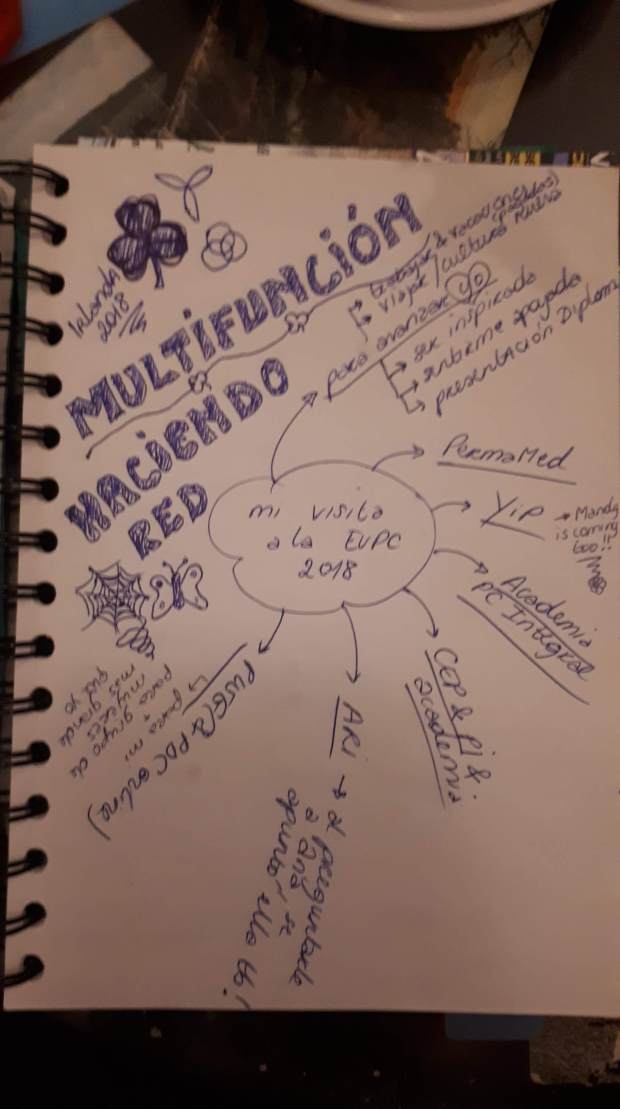 Irlanda
2018
MULTIFUNCIÓN
HACIENDO
RED
mi visita
a la EUPC
2018
para avanzar yo
viajar / cultura nueva
ser inspirada
sentirme apoyada
presentación Diploma
PermaMed
YiP
→ Mandy
is coming
too!!
Academia
PC Integral
CEP & Pi &
academia
ARi → al preguntarle
a Ana se
apuntó ella tb!
PWG (& PDC online)
↳ para mi
+
para grupo de
mujeres
más grande
que yo